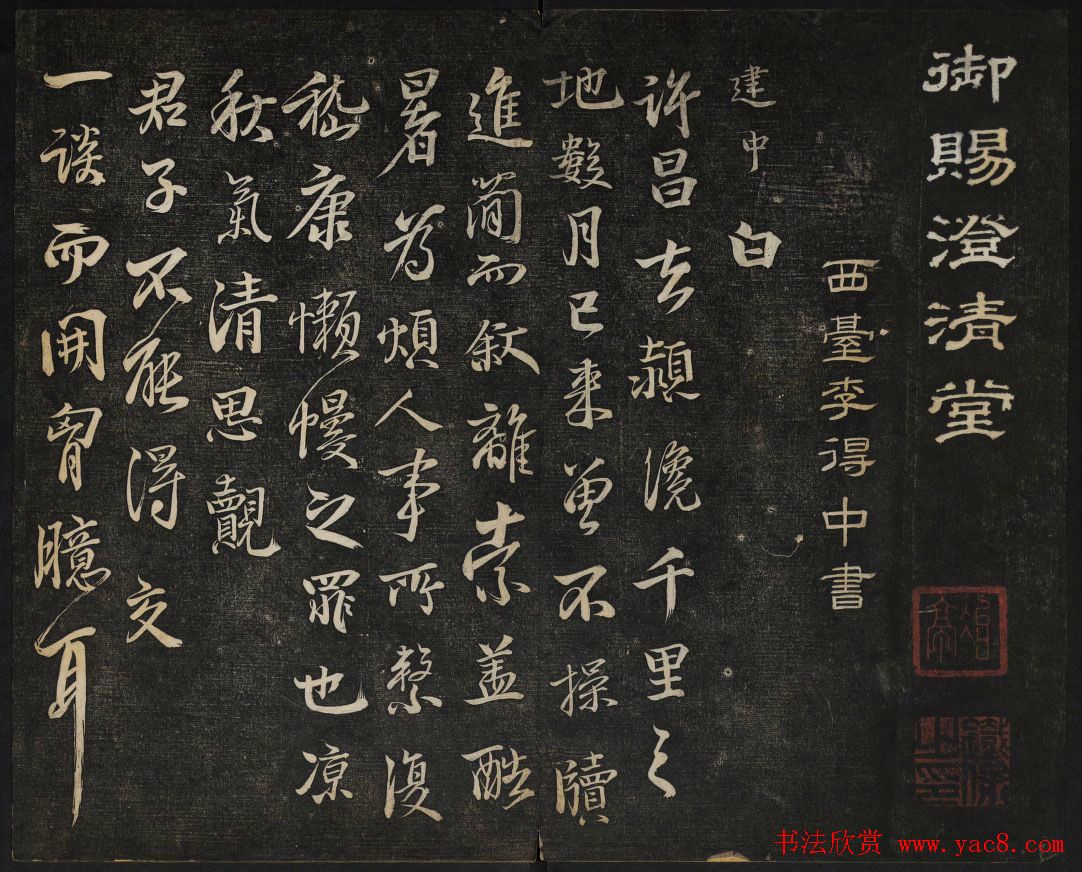 御賜澄清堂
西臺李得中書
建中白
許昌去潁纔千里之
地數月已来曾不操牘
進簡而叙離索蓋酷
暑為煩人事所繫復
嵇康懶慢之罪也凉
秋氣清思覿
君子不能得交
一談而開胷臆耳
书法欣赏 www.yac8.com